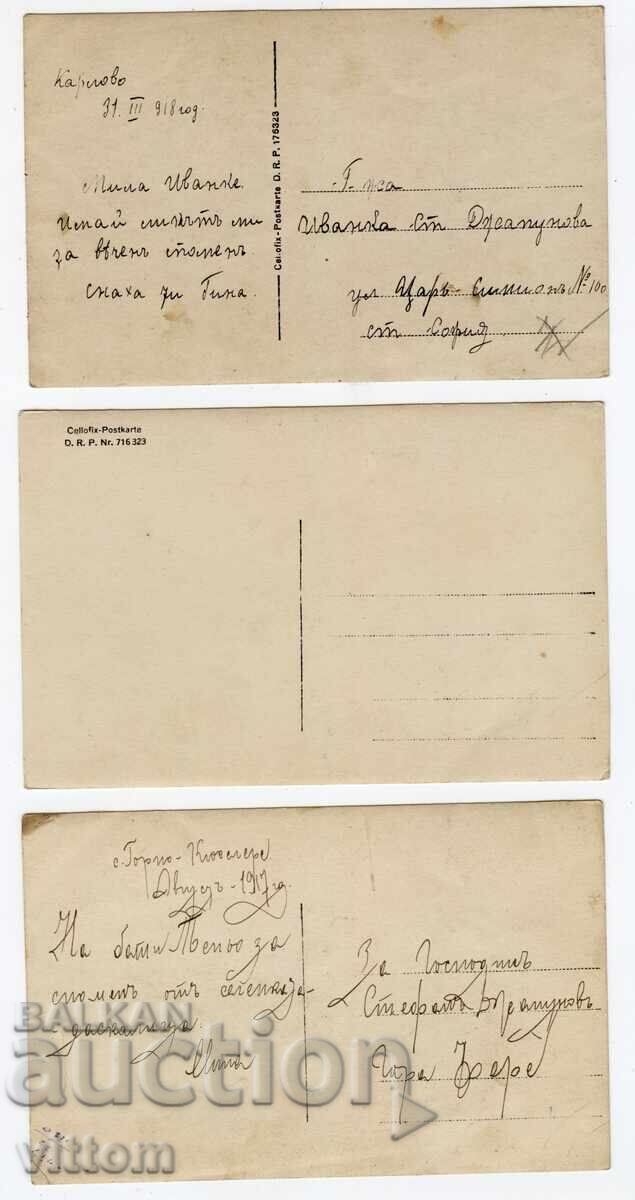 Карлово
31. III 918 год.
Мила Иванке.
Имай ликътъ ми
за вѣченъ споменъ.
снаха ти Гина.
Cellofix-Postkarte D. R. P. 176323
Г-жа
Иванка Ст Джапунова
ул Царь-Симионъ № 100
ст София
Cellofix-Postkarte
D. R. P. Nr. 716323
с. Горно-
Августъ - 1917 год.
На бати Теньо за
споменъ отъ
даскалица.
За Господинъ
Стефанъ Джапуновъ
Гара Фере
BALKAN
auction
vittom